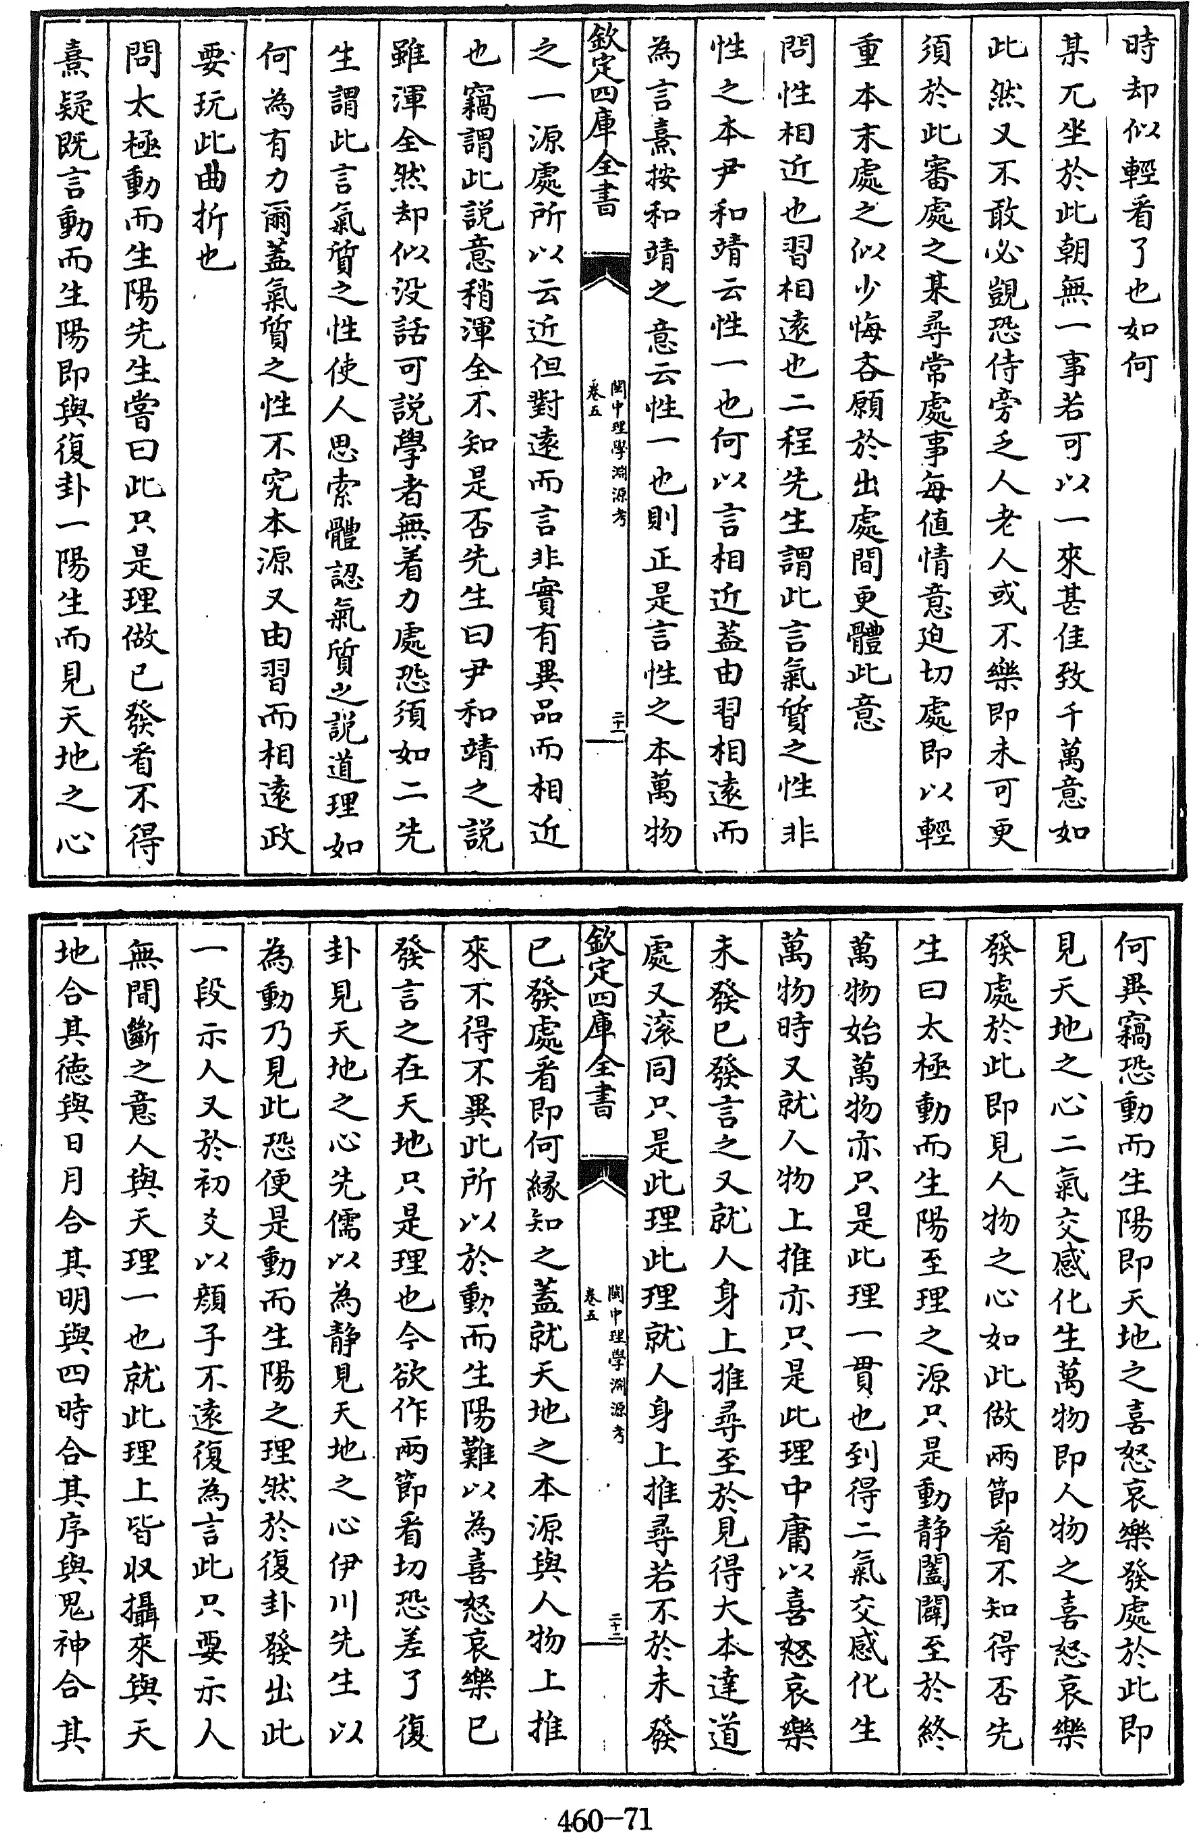 時却似輕看了也如何
某兀坐於此朝無一事若可以一來甚佳致千萬意如
此然又不敢必覬恐侍旁乏人老人或不樂即未可更
須於此審處之某尋常處事每值情意迫切處即以輕
重本末處之似少悔吝願於出處間更體此意
問性相近也習相遠也二程先生謂此言氣質之性非
性之本尹和靖云性一也何以言相近蓋由習相遠而
為言熹按和靖之意云性一也則正是言性之本萬物
欽定四庫全書
閩中理學淵源考
卷五
二十一
之一源處所以云近但對遠而言非實有異品而相近
也竊謂此説意稍渾全不知是否先生曰尹和靖之説
雖渾全然却似没話可説學者無着力處恐須如二先
生謂此言氣質之性使人思索體認氣質之説道理如
何為有力爾蓋氣質之性不究本源又由習而相遠政
要玩此曲折也
問太極動而生陽先生嘗曰此只是理做已發看不得
熹疑既言動而生陽即與復卦一陽生而見天地之心
何異竊恐動而生陽即天地之喜怒哀樂發處於此即
見天地之心二氣交感化生萬物即人物之喜怒哀樂
發處於此即見人物之心如此做兩節看不知得否先
生曰太極動而生陽至理之源只是動静闔闢至於終
萬物始萬物亦只是此理一貫也到得二氣交感化生
萬物時又就人物上推亦只是此理中庸以喜怒哀樂
未發已發言之又就人身上推尋至於見得大本達道
處又滚同只是此理此理就人身上推尋若不於未發
欽定四庫全書
閩中理學淵源考
卷五
二十二
已發處看即何緣知之蓋就天地之本源與人物上推
來不得不異此所以於動而生陽難以為喜怒哀樂已
發言之在天地只是理也今欲作兩節看切恐差了復
卦見天地之心先儒以為静見天地之心伊川先生以
為動乃見此恐便是動而生陽之理然於復卦發出此
一段示人又於初爻以顔子不遠復為言此只要示人
無間斷之意人與天理一也就此理上皆収攝來與天
地合其德與日月合其明與四時合其序與鬼神合其
460-71